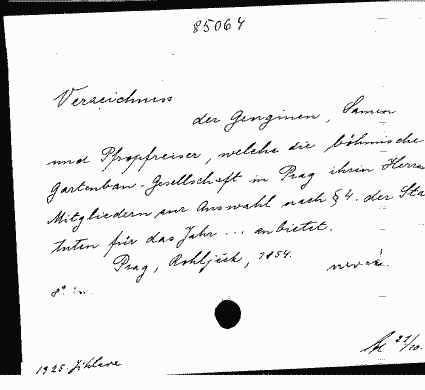 85064
Verzeichniss
der Genginen, Samen
und Pfropfreiser, welche die böhmische
Gartenbau-Gesellschaft in Prag ihrin Herren
Mitgliedern zur Auswahl nach § 4. der Sta
tuten für das Jahr ... anbietet.
Prag, 1854.
8°
1925. Jihlava